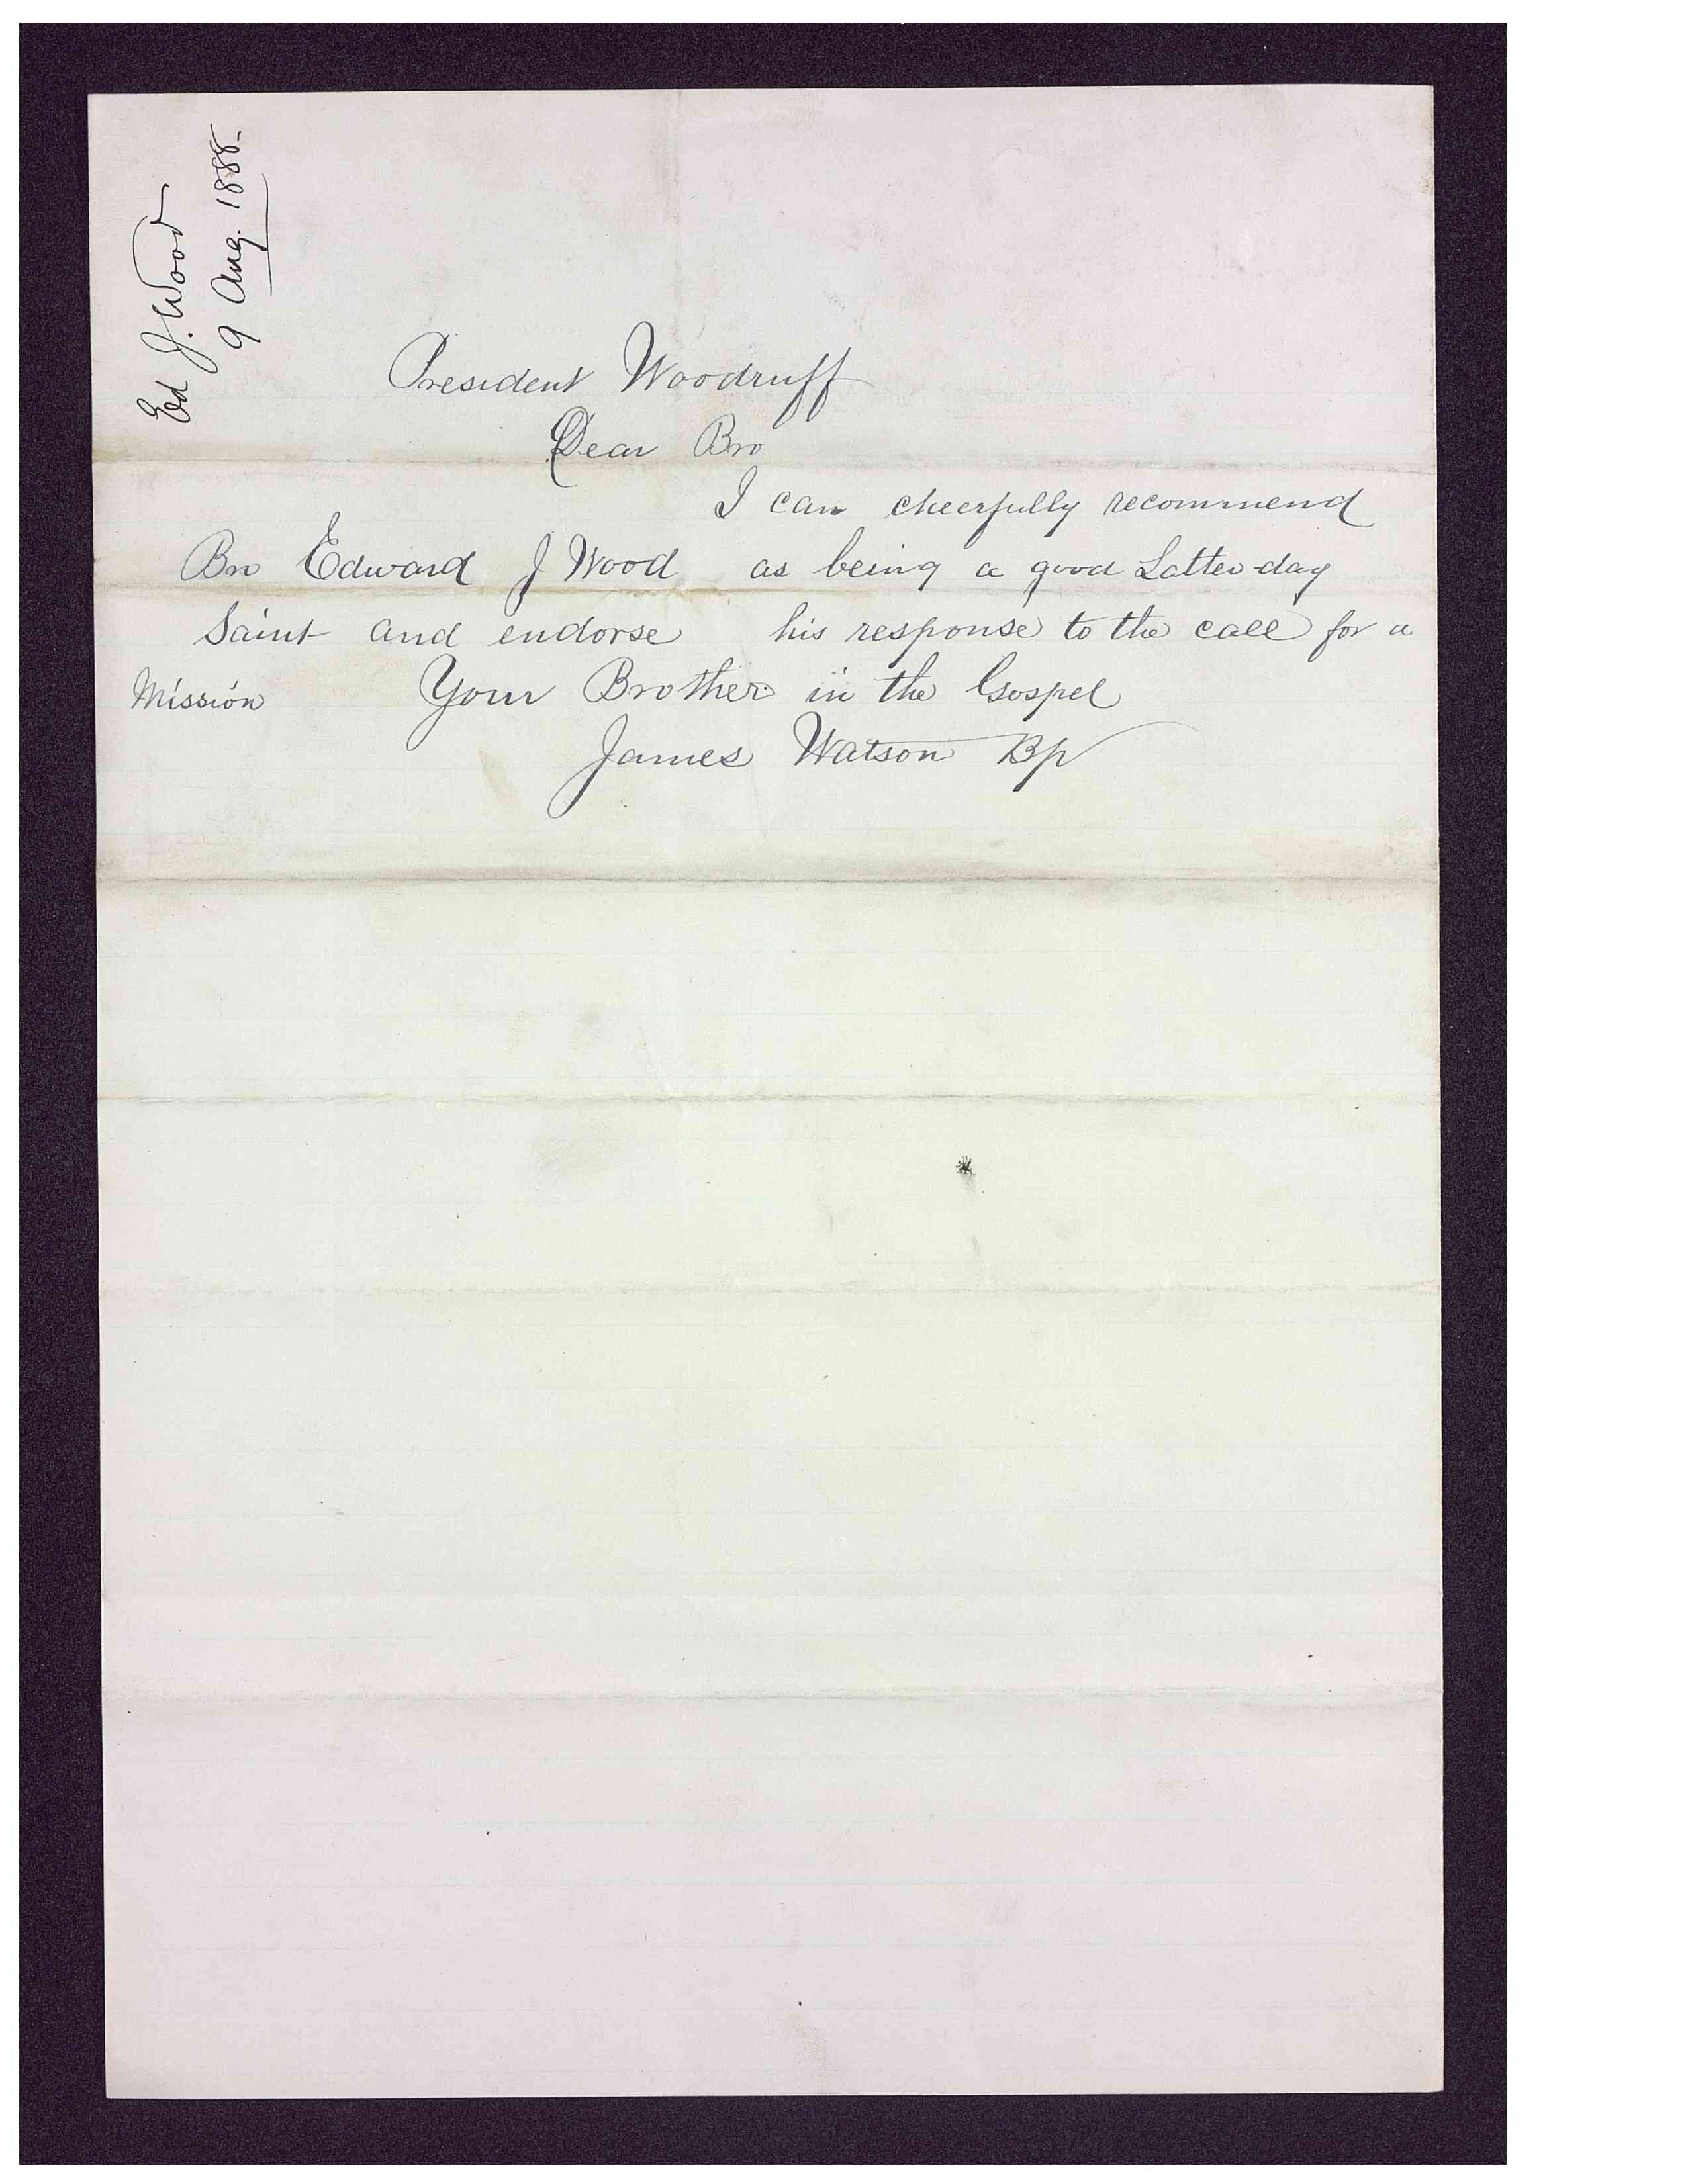 Ed J. Wood
9 Aug. 1888.
President Woodruff
Dear Bro
I can cheerfully recommend
Bro Edward J Wood as being a good Latter-day
Saint and endorse his response to the call for a
Mission Your Brother in the Gospel
James Watson Bp